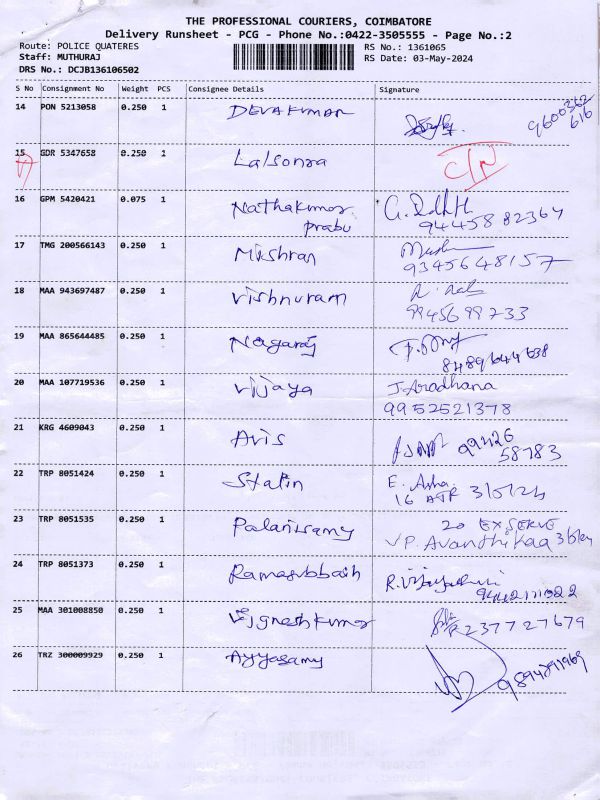 THE PROFESSIONAL COURIERS, COIMBATORE
Delivery Runsheet - PCG - Phone No.:0422-3505555 - Page No.:2
Route: POLICE QUATERES RS No.: 1361065
Staff: MUTHURAJ RS Date: 03-May-2024
DRS No.: DCJB136106502
S No Consignment No Weight PCS Consignee Details Signature
14 PON 5213058 0.250 1 DEVAKUMAR 9600362
616
15 GDR 5347658 0.250 1 Lalsonra C/N
16 GPM 5420421 0.075 1 Nathakumar
prabu 94458 82364
17 TMG 200566143 0.250 1 Mikshran
9345648157
18 MAA 943697487 0.250 1 Vishnuram
9945699733
19 MAA 865644485 0.250 1 Nagaraj
8489644638
20 MAA 107719536 0.250 1 Vijaya J. Aradhana
9952521378
21 KRG 4609043 0.250 1 Avis 99426
58783
22 TRP 8051424 0.250 1 Stalin E. Asha
16 3/5/24
23 TRP 8051535 0.250 1 Palanisamy 20 EX.SERVE
V.P. Avanthikaa 3/5/24
24 TRP 8051373 0.250 1 Ramasubbaih R. Vijayashini
25 MAA 301008850 0.250 1 Vignesh kumar 8237727679
26 TRZ 300009929 0.250 1 Ayyasamy 9894791969